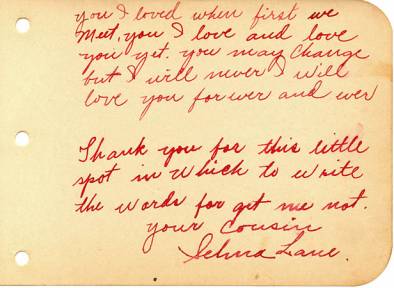 you I loved when first we
Meet, you I love and love
you yet. you may change
but I will never I will
love you for ever and ever
Thank you for this little
spot in which to write
the words for get me not.
your Cousin
Selma Lane.